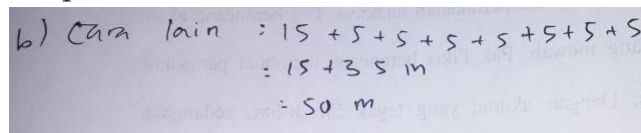 b) Cara lain : 15 + 5 + 5 + 5 + 5 + 5 + 5 + 5
: 15 + 35 m
: 50 m